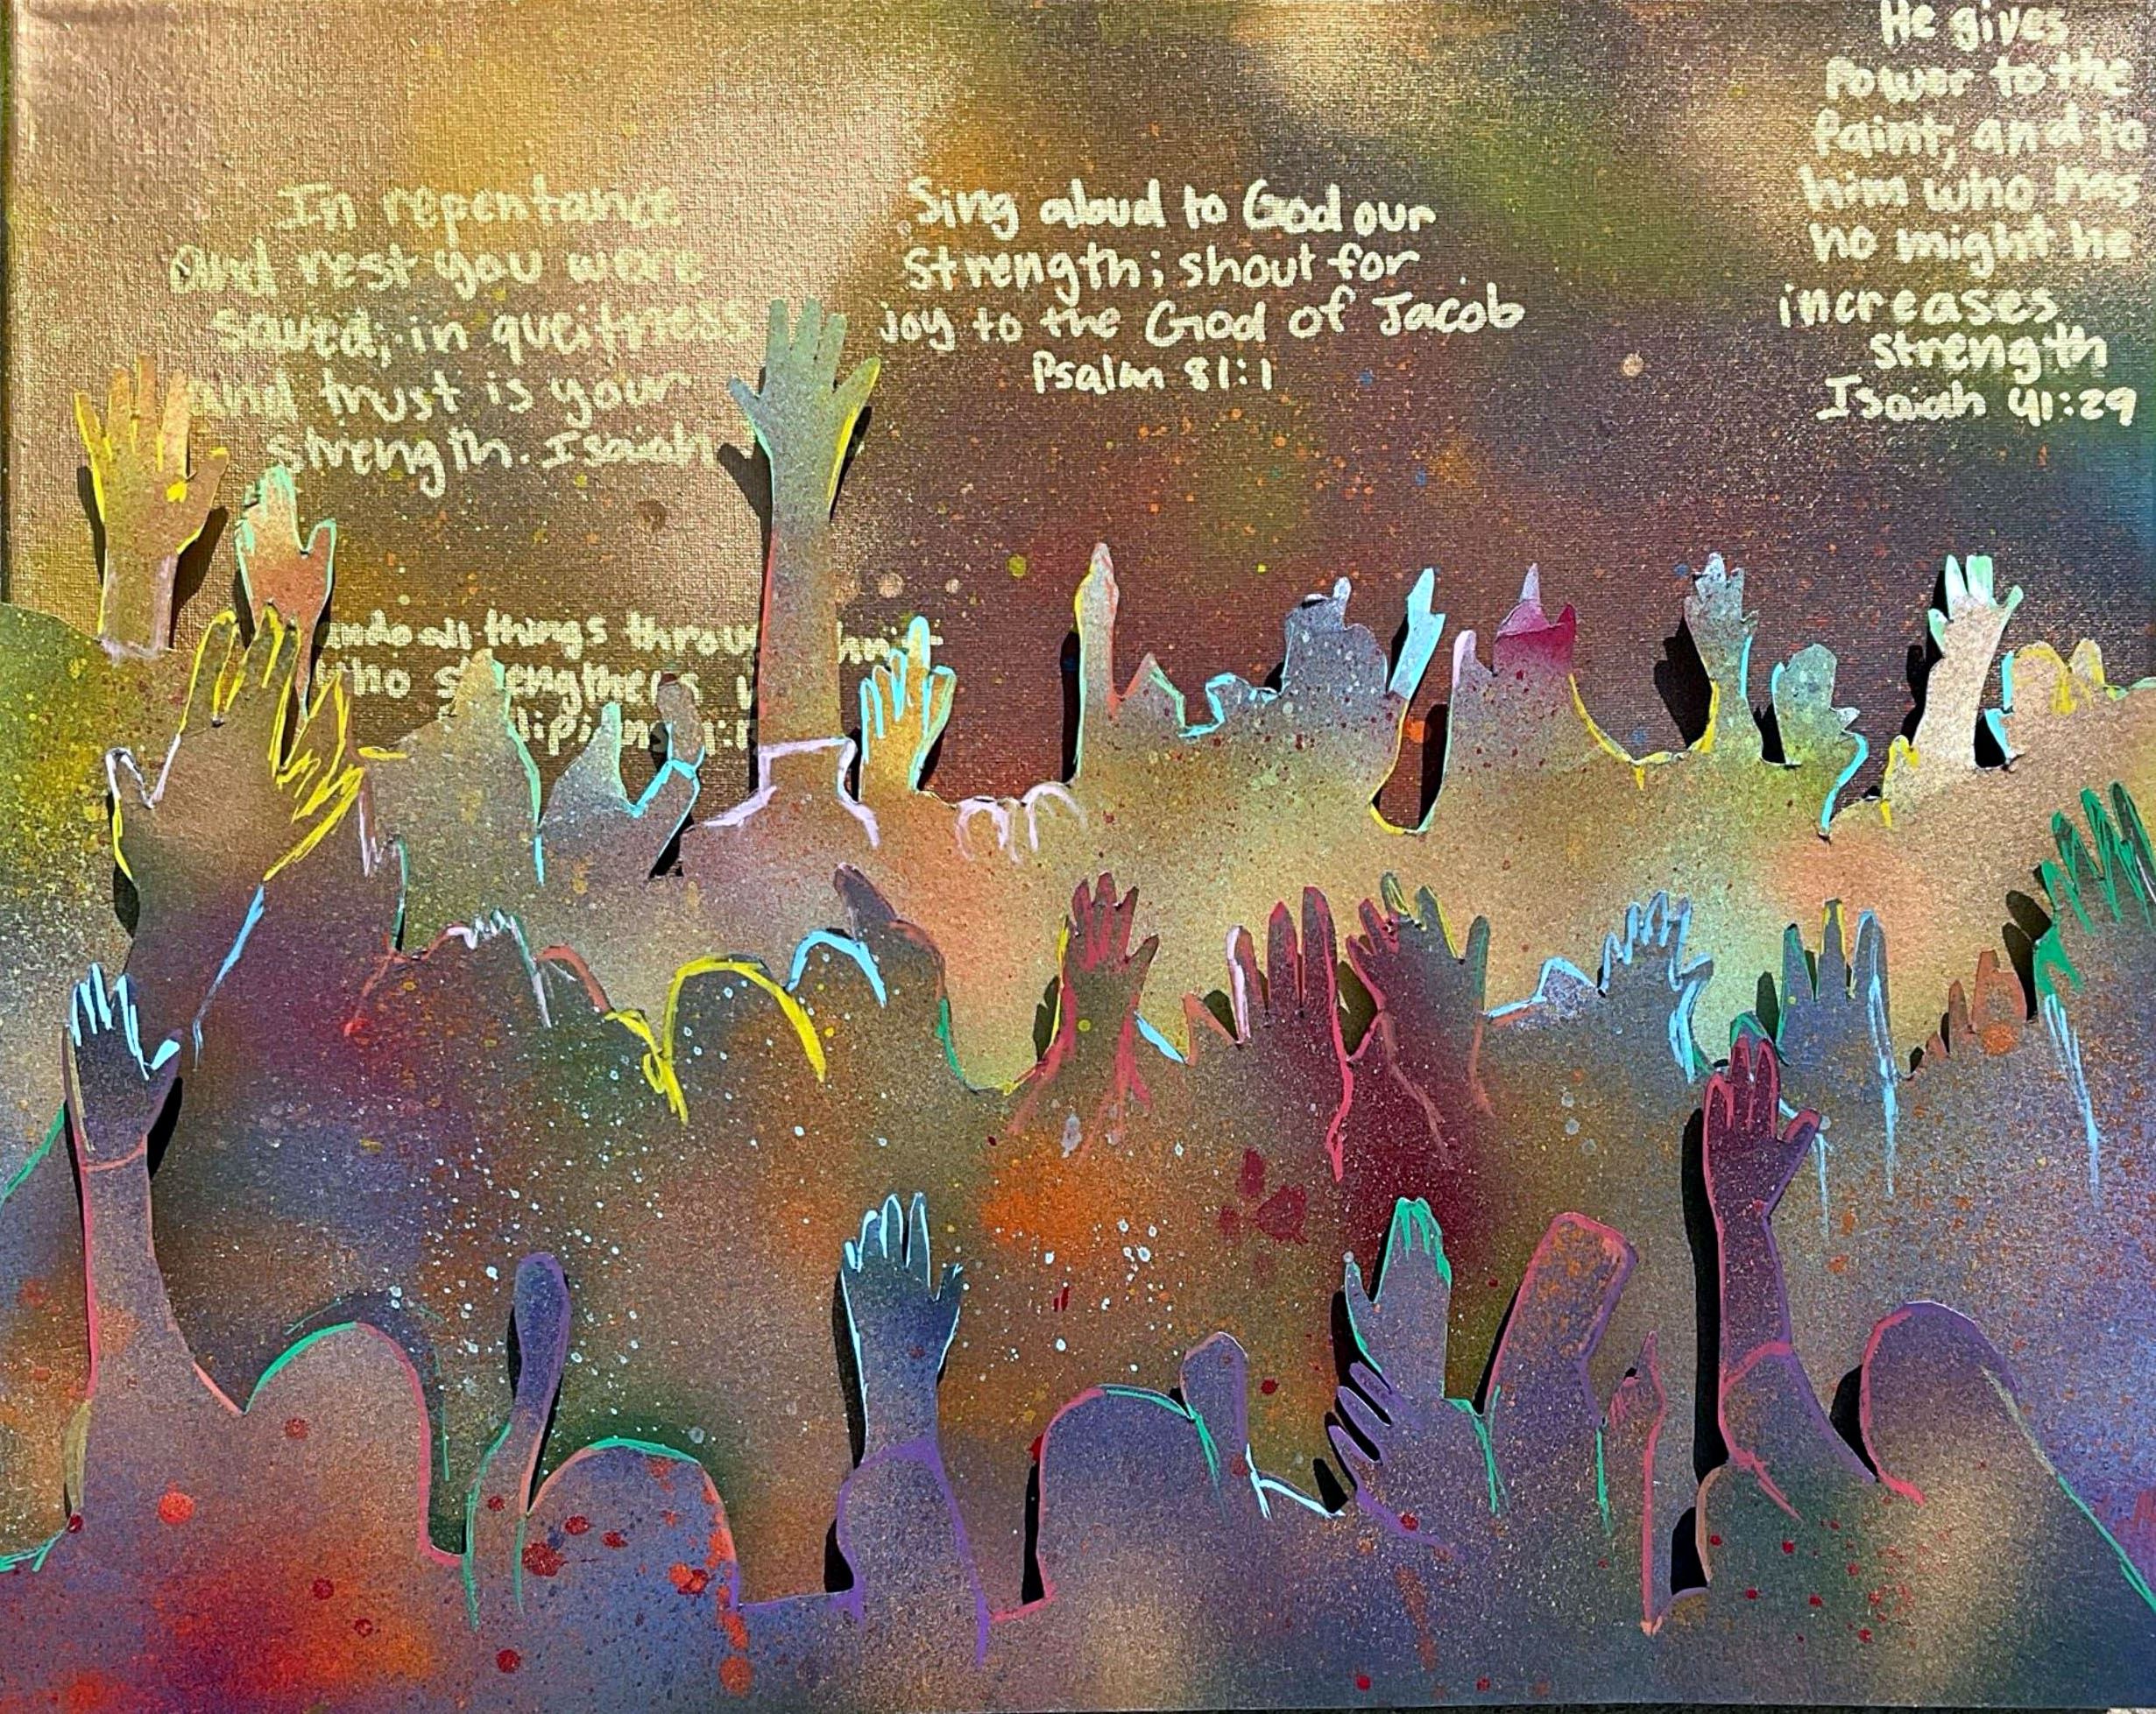 In repentance
and rest you were
saved; in queitness
and trust is your
strength. Isaiah
Sing aloud to God our
strength; shout for
joy to the God of Jacob
Psalm 81:1
He gives
Power to the
faint, and to
him who has
no might he
increases
strength
Isaiah 41:29
all things
who strengthens